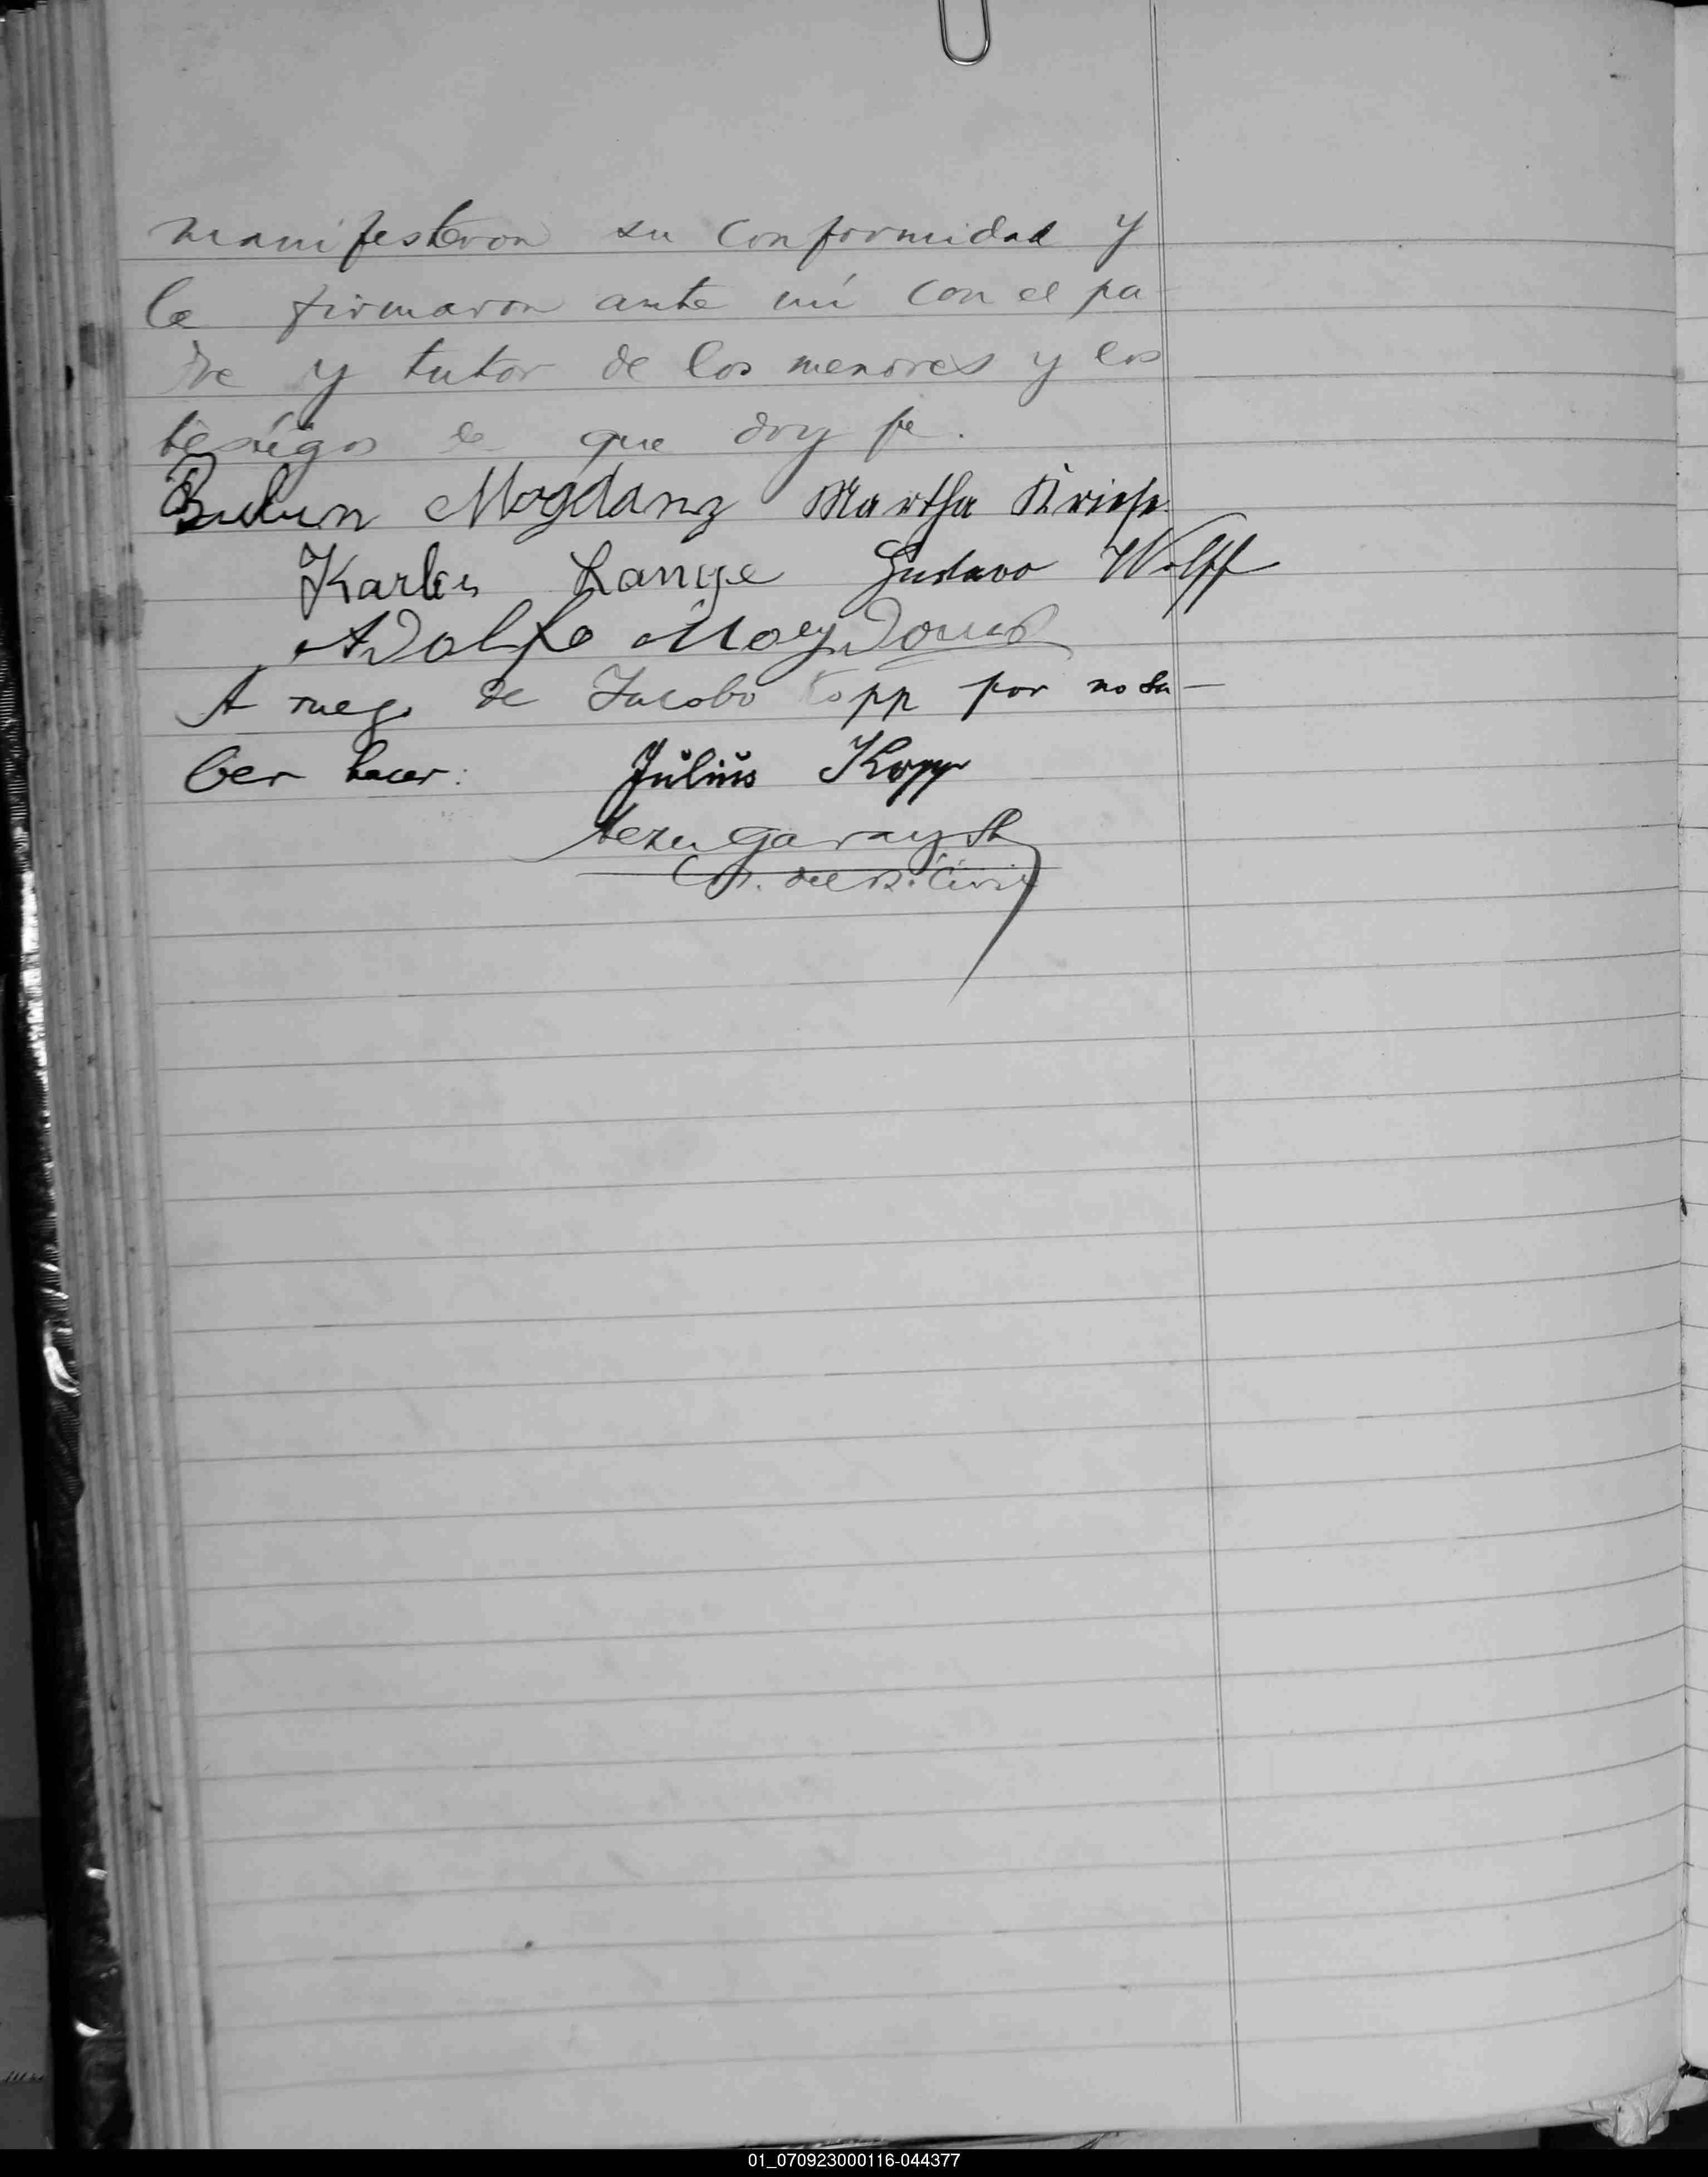 manifestaron su conformidad y
la firmaron ante mí con el pa-
dre y tutor de los menores y los
testigos de que doy fe.
Mogdanz Martha Kriese
Karlos Lange Gustavo Wolff
Adolfo Mogdans
A ruego de Jacobo Kopp por no sa-
ber hacer: Július Kopp
Garay
Of. del R. Civil
01_070923000116-044377